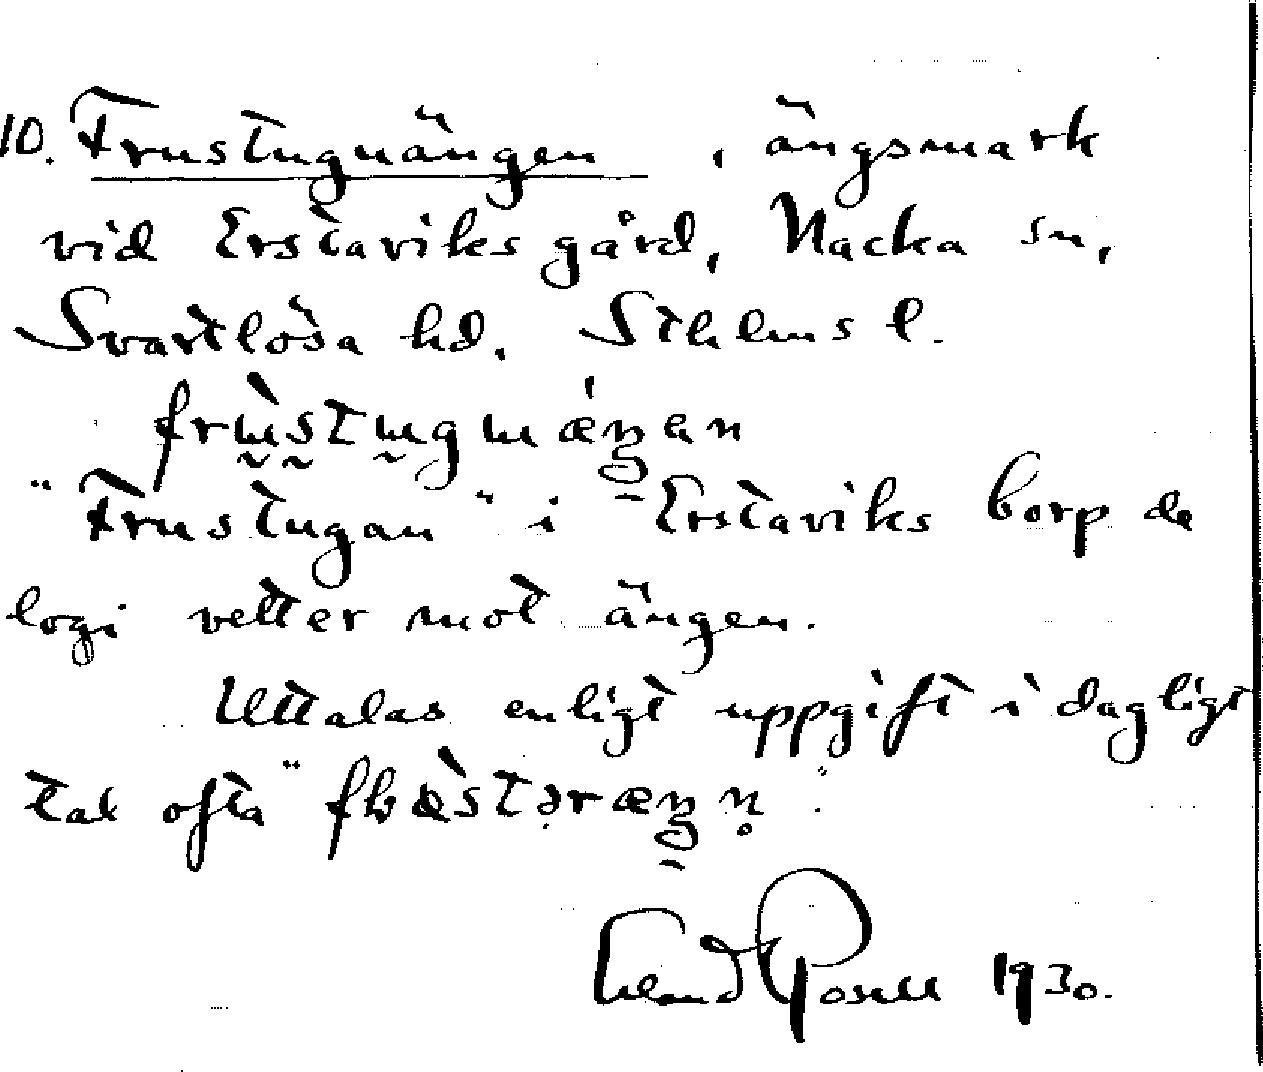 10. Frustugnängen, ängsmark
vid Erstaviks gård, Nacka sn,
Svartlösa hd. Sthlms l.
"Frustugan" i Erstaviks corps de
logi vetter mot ängen.
Uttalas enligt uppgift i dagligt
tal ofta
Erland Rosell 1930.